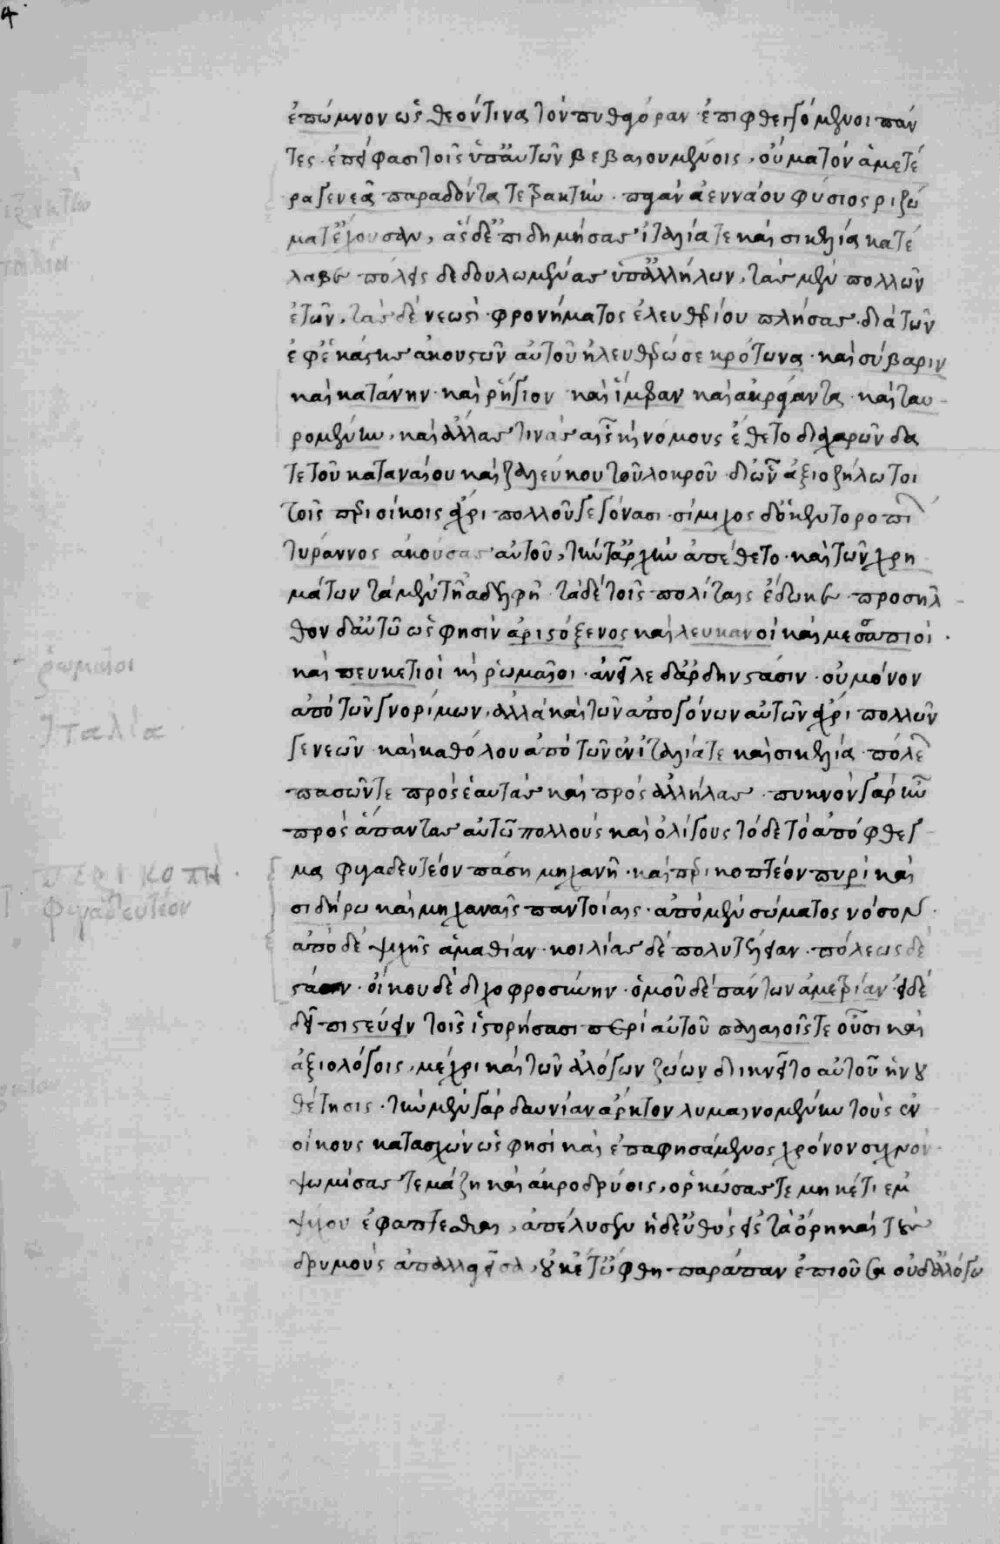 4
ἐπώμνυον ὡς θεόν τινα τὸν πυθαγόραν ἐπιφθεγγόμενοι πάν
τες ἐπὶ πᾶσι τοῖς ὑπ' αὐτῶν βεβαιουμένοις. οὐ μὰ τὸν ἁμετέ
ρα γενεᾷ παραδόντα τετρακτὺν. παγὰν ἀεννάου φύσιος ῥιζώ
ματ' ἔχουσαν, ἃς δ' ἐπιδημήσας ἰταλίᾳ τε καὶ σικελίᾳ κατέ
λαβε πόλεις δεδουλωμένας ὑπ' ἀλλήλων, τὰς μὲν πολλῶν
ἐτῶν, τὰς δὲ νεωστὶ φρονήματος ἐλευθερίου πλήσας διὰ τῶν
ἐφ' ἑκάστης ἀκουστῶν αὐτοῦ ἠλευθέρωσε κρότωνα καὶ σύβαριν
καὶ κατάνην καὶ ῥήγιον καὶ ἱμέραν καὶ ἀκράγαντα καὶ ταυ
ρομένιον, καὶ ἄλλας τινὰς αἷς καὶ νόμους ἔθετο διὰ χαρώνδα
τε τοῦ καταναίου καὶ ζαλεύκου τοῦ λοκροῦ δι' ὧν ἀξιοζήλωτοι
τοῖς περιοίκοις ἄχρι πολλοῦ γεγόνασι. σίμιχος δ' ὁ κεντορόπι
τύραννος ἀκούσας αὐτοῦ, τὴν τ' ἀρχὴν ἀπέθετο καὶ τῶν χρη
μάτων τὰ μὲν τῇ ἀδελφῇ τὰ δὲ τοῖς πολίταις ἔδωκε προσῆλ
θον δ' αὐτῷ ὥς φησιν ἀριστόξενος καὶ λευκανοὶ καὶ μεσάπιοι
καὶ πευκέτιοι καὶ ῥωμαῖοι. ἀνεῖλε δ' ἄρδην στάσιν οὐ μόνον
ἀπὸ τῶν γνορίμων, ἀλλὰ καὶ τῶν ἀπογόνων αὐτῶν ἄχρι πολλῶν
γενεῶν καὶ καθόλου ἀπὸ τῶν ἐν ἰταλίᾳ τε καὶ σικελίᾳ πόλε
πασῶν τε πρὸς ἑαυτὰς καὶ πρὸς ἀλλήλας. πυκνὸν γὰρ ἦν
πρὸς ἅπαντας αὐτῷ πολλοὺς καὶ ὀλίγους τόδε τὸ ἀπόφθεγ
μα φυγαδευτέον πάσῃ μηχανῇ καὶ περικοπτέον πυρὶ καὶ
σιδήρῳ καὶ μηχαναῖς παντοίαις ἀπὸ μὲν σώματος νόσον
ἀπὸ δὲ ψυχῆς ἀμαθίαν κοιλίας δὲ πολυτέλειαν πόλεως δὲ
στάσιν οἴκου δὲ διχοφροσύνην ὁμοῦ δὲ πάντων ἀμετρίαν εἰ δὲ
δεῖ πιστεύειν τοῖς ἱστορήσασι περὶ αὐτοῦ παλαιοῖς τε οὖσι καὶ
ἀξιολόγοις, μέχρι καὶ τῶν ἀλόγων ζώων διικνεῖτο αὐτοῦ ἡ νου
θέτησις. τὴν μὲν γὰρ δαυνίαν ἄρκτον λυμαινομένην τοὺς ἐν
οίκους κατασχὼν ὥς φησι καὶ ἐπαφησάμενος χρόνον συχνὸν
ψωμίσας τε μάζῃ καὶ ἀκροδρύοις, ὁρκώσας τε μηκέτι ἐμ
ψύχου ἐφάπτεσθαι, ἀπέλυσεν ἡ δ' εὐθὺς εἰς τὰ ὄρη καὶ τοὺς
δρυμοὺς ἀπαλλαγεῖσα, οὐκέτ' ὤφθη παράπαν ἐπιοῦσα οὐδ' ἀλόγῳ
ῥωμαῖοι
Ἰταλία
περικοπή
φυγαδευτέον